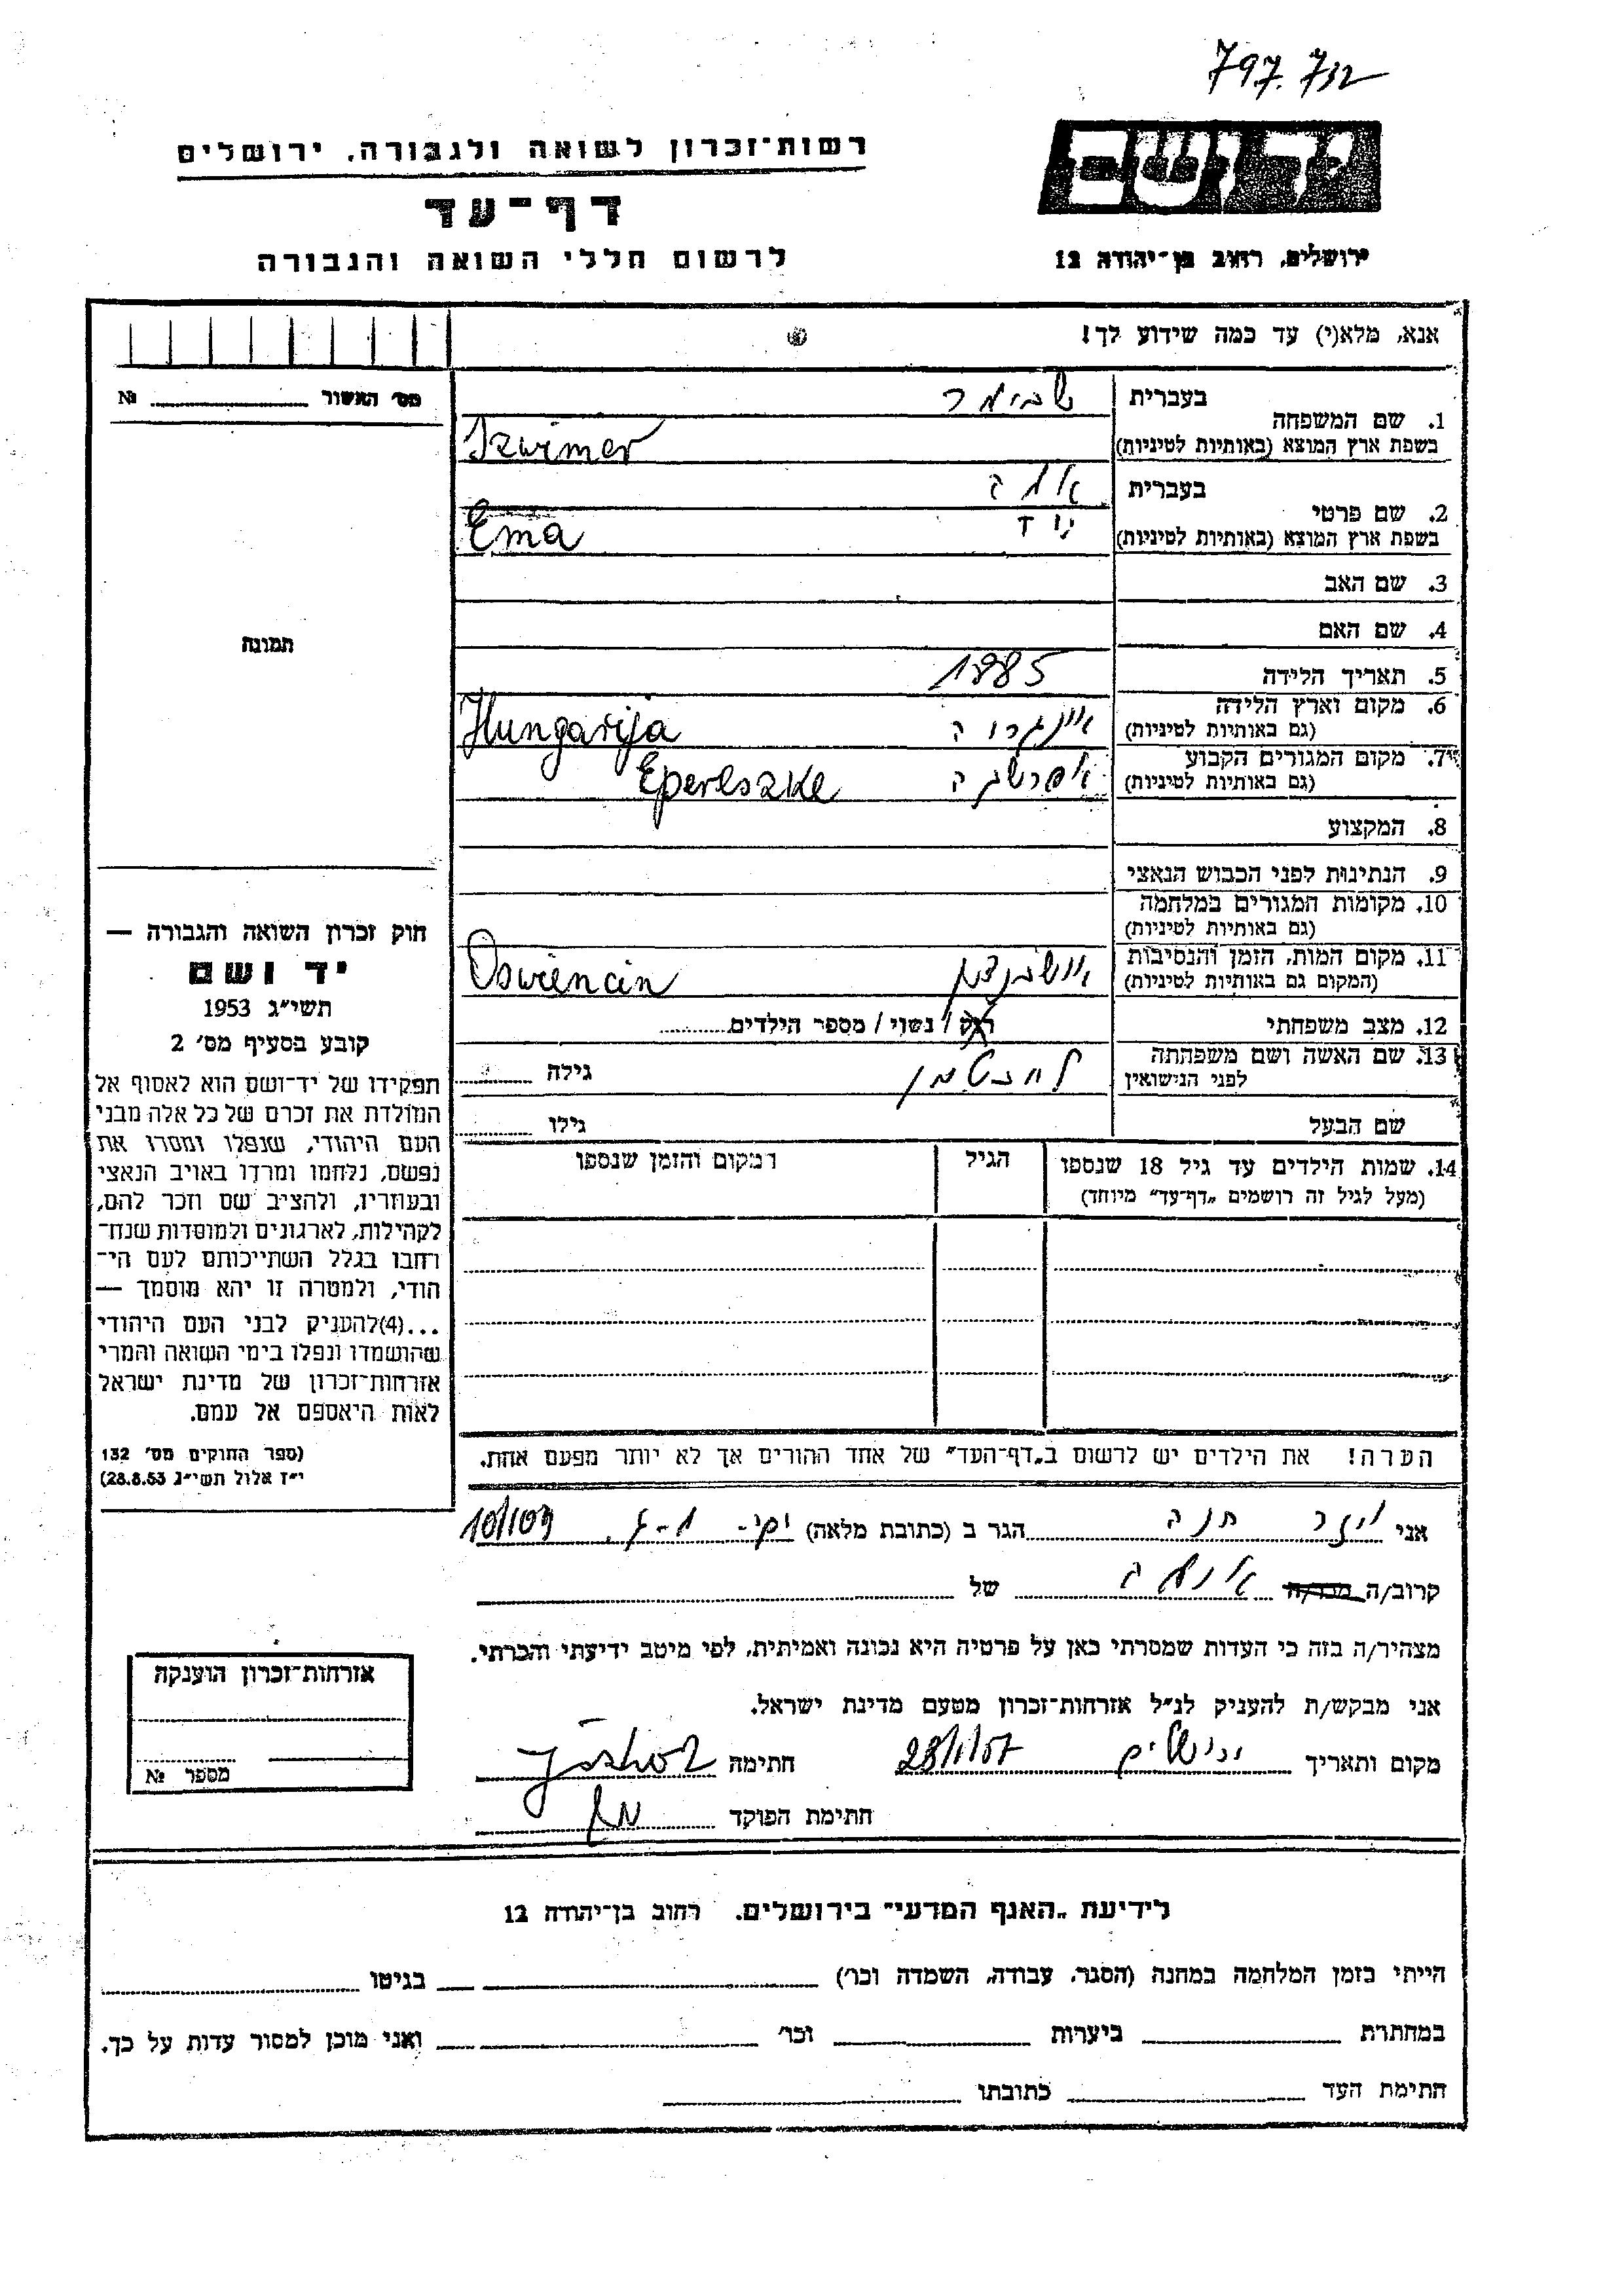 797.732
רשות־זכרון לשואה ולגבורה, ירושלים
יד ושם
דף־עד
לרשום חללי השואה והגבורה
ירושלים, רחוב בן־יהודה 12
אנא, מלא(י) עד כמה שידוע לך!
מס׳ האשור № 
1. שם המשפחה בעברית שבימר
בשפת ארץ המוצא (באותיות לטיניות) Szwimer
2. שם פרטי בעברית אמה
בשפת ארץ המוצא (באותיות לטיניות) Ema
3. שם האב
4. שם האם
תמונה
5. תאריך הלידה 1885
6. מקום וארץ הלידה Hungarija
(גם באותיות לטיניות)
7. מקום המגורים הקבוע Epereszke
(גם באותיות לטיניות)
8. המקצוע
9. הנתינות לפני הכבוש הנאצי
10. מקומות המגורים במלחמה
(גם באותיות לטיניות)
11. מקום המות, הזמן והנסיבות Oswiencin
(המקום גם באותיות לטיניות)
12. מצב משפחתי רוק / נשוי / מספר הילדים
13. שם האשה ושם משפחתה גילה
לפני הנישואין
שם הבעל גילו
14. שמות הילדים עד גיל 18 שנספו הגיל המקום והזמן שנספו
(מעל לגיל זה רושמים „דף־עד” מיוחד)
חוק זכרון השואה והגבורה —
יד ושם
תשי״ג 1953
קובע בסעיף מס׳ 2
תפקידו של יד־ושם הוא לאסוף אל
המולדת את זכרם של כל אלה מבני
העם היהודי, שנפלו ומסרו את
נפשם, נלחמו ומרדו באויב הנאצי
ובעוזריו, ולהציב שם וזכר להם,
לקהילות, לארגונים ולמוסדות שנח־
רחבו בגלל השתייכותם לעם הי־
הודי, ולמטרה זו יהא מוסמך —
...(4)להעניק לבני העם היהודי
שהושמדו ונפלו בימי השואה והמרי
אזרחות־זכרון של מדינת ישראל
לאות היאספם אל עמם.
(ספר החוקים מס׳ 132
י״ז אלול תשי״ג 28.8.53)
הערה! את הילדים יש לרשום ב„דף־העד” של אחד ההורים אך לא יותר מפעם אחת.
אני חנה הגר ב (כתובת מלאה) 101/109
קרוב/ה מכר/ה של
מצהיר/ה בזה כי העדות שמסרתי כאן על פרטיה היא נכונה ואמיתית, לפי מיטב ידיעתי והכרתי.
אני מבקש/ת להעניק לנ״ל אזרחות־זכרון מטעם מדינת ישראל.
מקום ותאריך ירושלים 23/1/57 חתימה
חתימת הפוקד
אזרחות־זכרון הוענקה
מספר №
לידיעת „האגף המדעי” בירושלים, רחוב בן־יהודה 12
הייתי בזמן המלחמה במחנה (הסגר, עבודה, השמדה וכו׳) בגיטו
במחתרת ביערות וכו׳ ואני מוכן למסור עדות על כך.
חתימת העד כתובתו